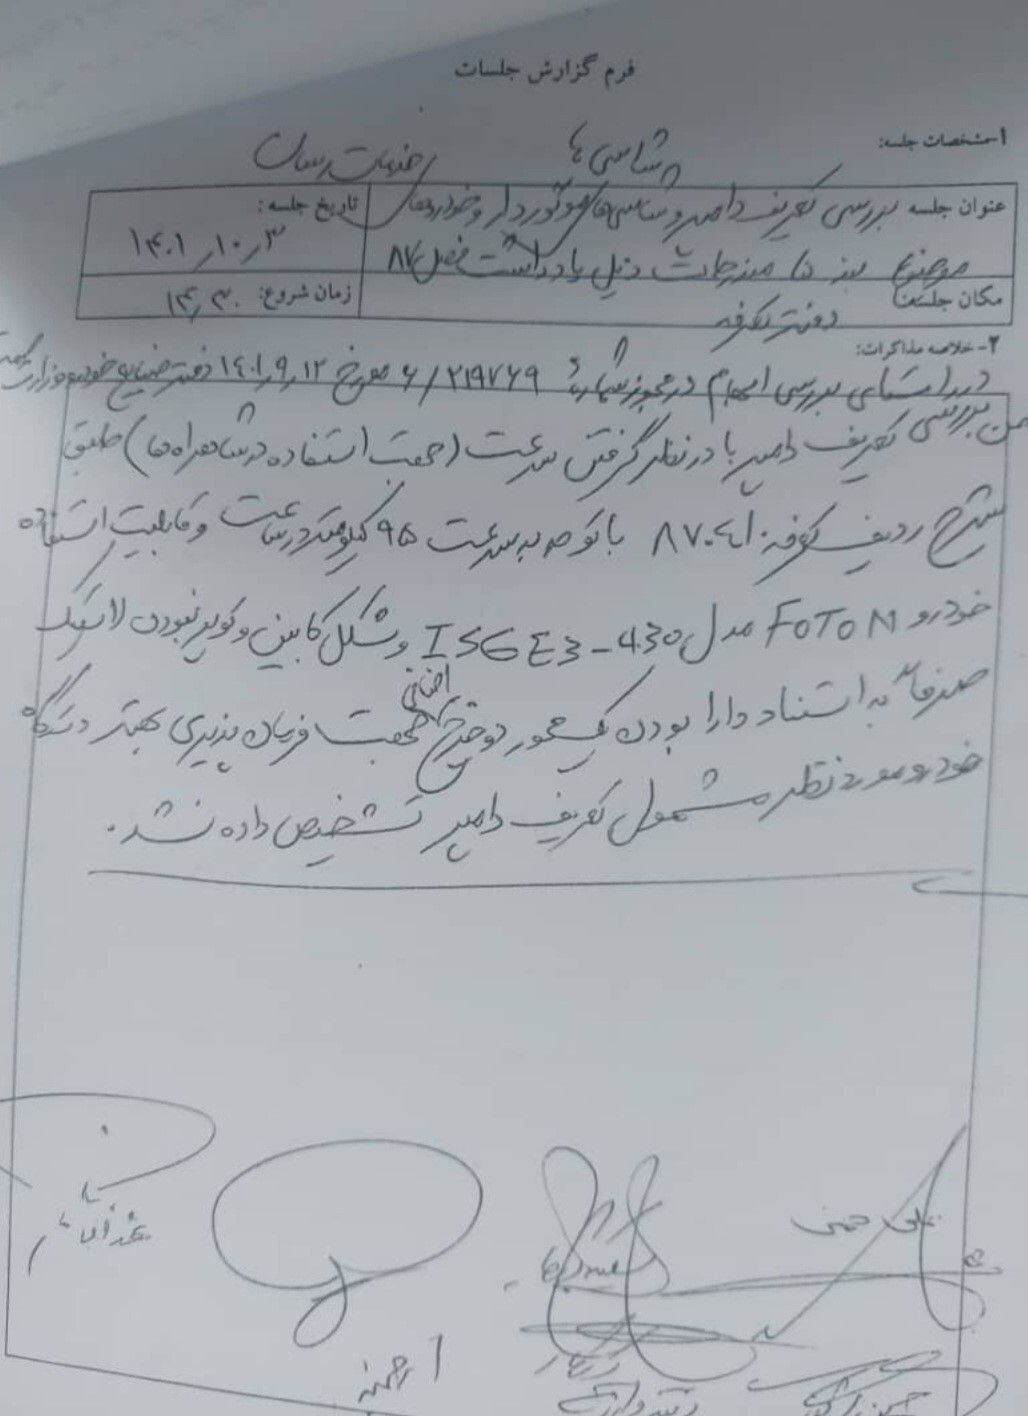 فرم گزارش جلسات
۱-مشخصات جلسه:
شاسی ها خدمات رسان
عنوان جلسه بررسی تعریف دامپر و شاسی های موتوردار و خودروهای
تاریخ جلسه:
۱۴۰۱/۱۰/۳
موضوع بند ۵ مندرجات ذیل یادداشت فصل ۸۷
مکان جلسه:
دفتر تعرفه
زمان شروع: ۱۴/۳۰
۲-خلاصه مذاکرات:
در راستای بررسی ابهام در مجوز شماره ۶/۲۱۹۷۶۹ مورخ ۱۴۰۱/۹/۱۲ دفتر صنایع خودرو وزارت صمت
ضمن بررسی تعریف دامپر با در نظر گرفتن سرعت (جهت استفاده در شاهراه ها) طبق
شرح ردیف تعرفه ۸۷۰۴۱۰ با توجه به سرعت ۹۵ کیلومتر در ساعت و قابلیت استفاده
خودرو FOTON مدل ISGE3-430 و شکل کابین و کویر نبودن لاستیک
صرفاً به استناد دارا بودن یک محور دو چرخ اضافی جهت فرمان پذیری بهتر دستگاه
خودرو مورد نظر مشمول تعریف دامپر تشخیص داده نشد.